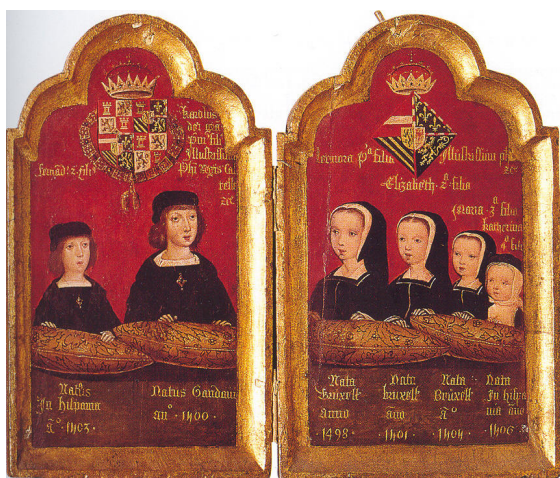 Karolus
dei gra
Prim' fili'
Illustrissi
Phi Regis Cas
telle
zc
fernād' 2' fili'
Natus
In hispania
Aº 1503
Natus Gandaui
anº 1500
Leonora pª filia
Illustrissimi phi
zc
Elizabeth 2ª filia
Maria 3ª filia
Katherina
4ª fili
Nata
Bruxell
anno
1498
Nata
bruxell
año
1501
Nata
Bruxell
Aº
1505
Nata
In hispa
nia año
1506